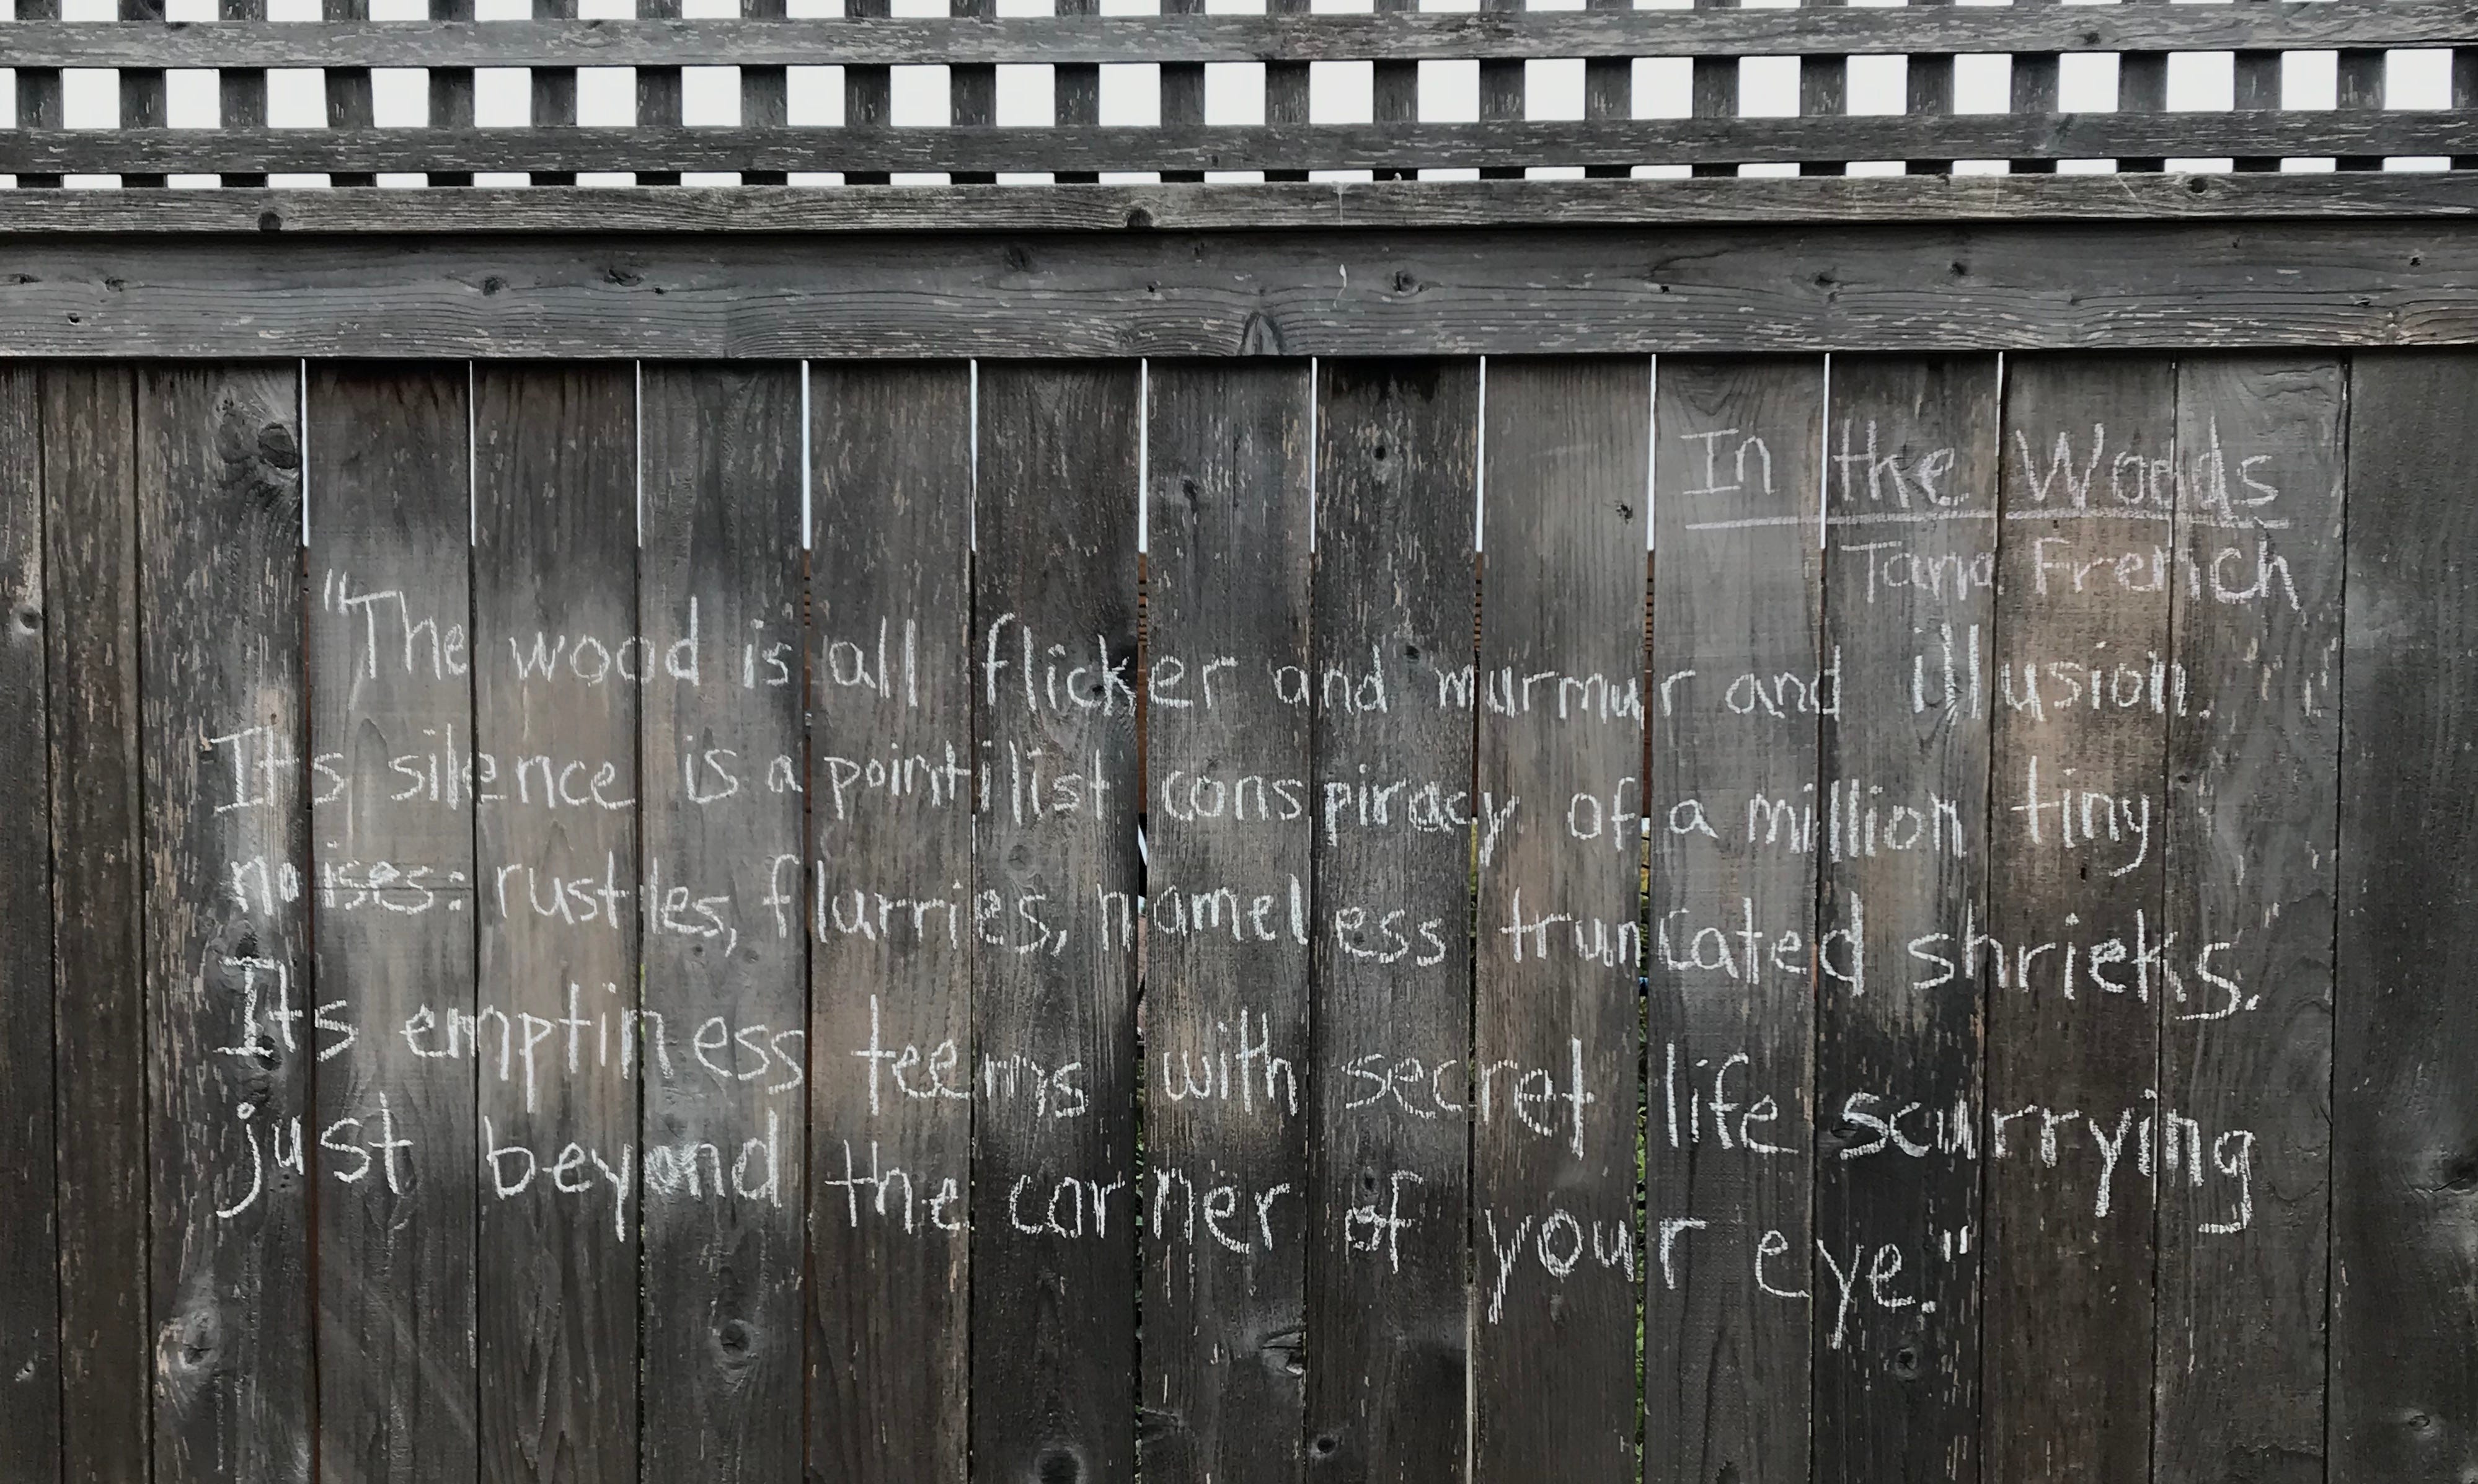 In the Woods
Tana French
"The wood is all flicker and murmur and illusion.
Its silence is a pointilist conspiracy of a million tiny
noises: rustles, flurries, nameless truncated shrieks.
Its emptiness teems with secret life scurrying
just beyond the corner of your eye."